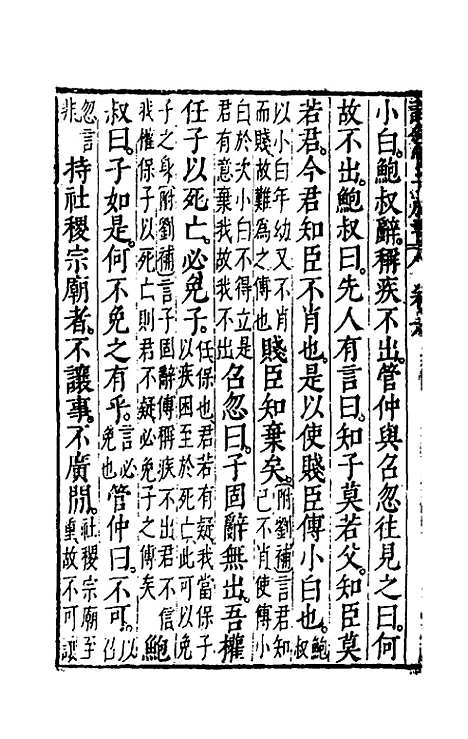 小白。鮑叔辭。稱疾不出。管仲與召忽往見之曰。何
故不出。鮑叔曰。先人有言曰。知子莫若父。知臣莫
若君。今君知臣不肖也。是以使賤臣傅小白也。鮑叔
以小白年幼又不肖而賤故難為之傅也賤臣知棄矣。附劉補言君知己不肖使傅小
白於次小白不得立是君有意棄我故我不出召忽曰。子固辭無出。吾權
任子以死亡。必免子。任保也君若有疑我當保子以疾困至於死亡此可以免
子之身附劉補言子固辭傅稱疾不出君不信我權保子以死亡則君不疑必免子之傅矣鮑
叔曰。子如是。何不免之有乎。言必免也管仲曰。不可。以召
忽言非持社稷宗廟者。不讓事。不廣閒。社稷宗廟至重故不可讓